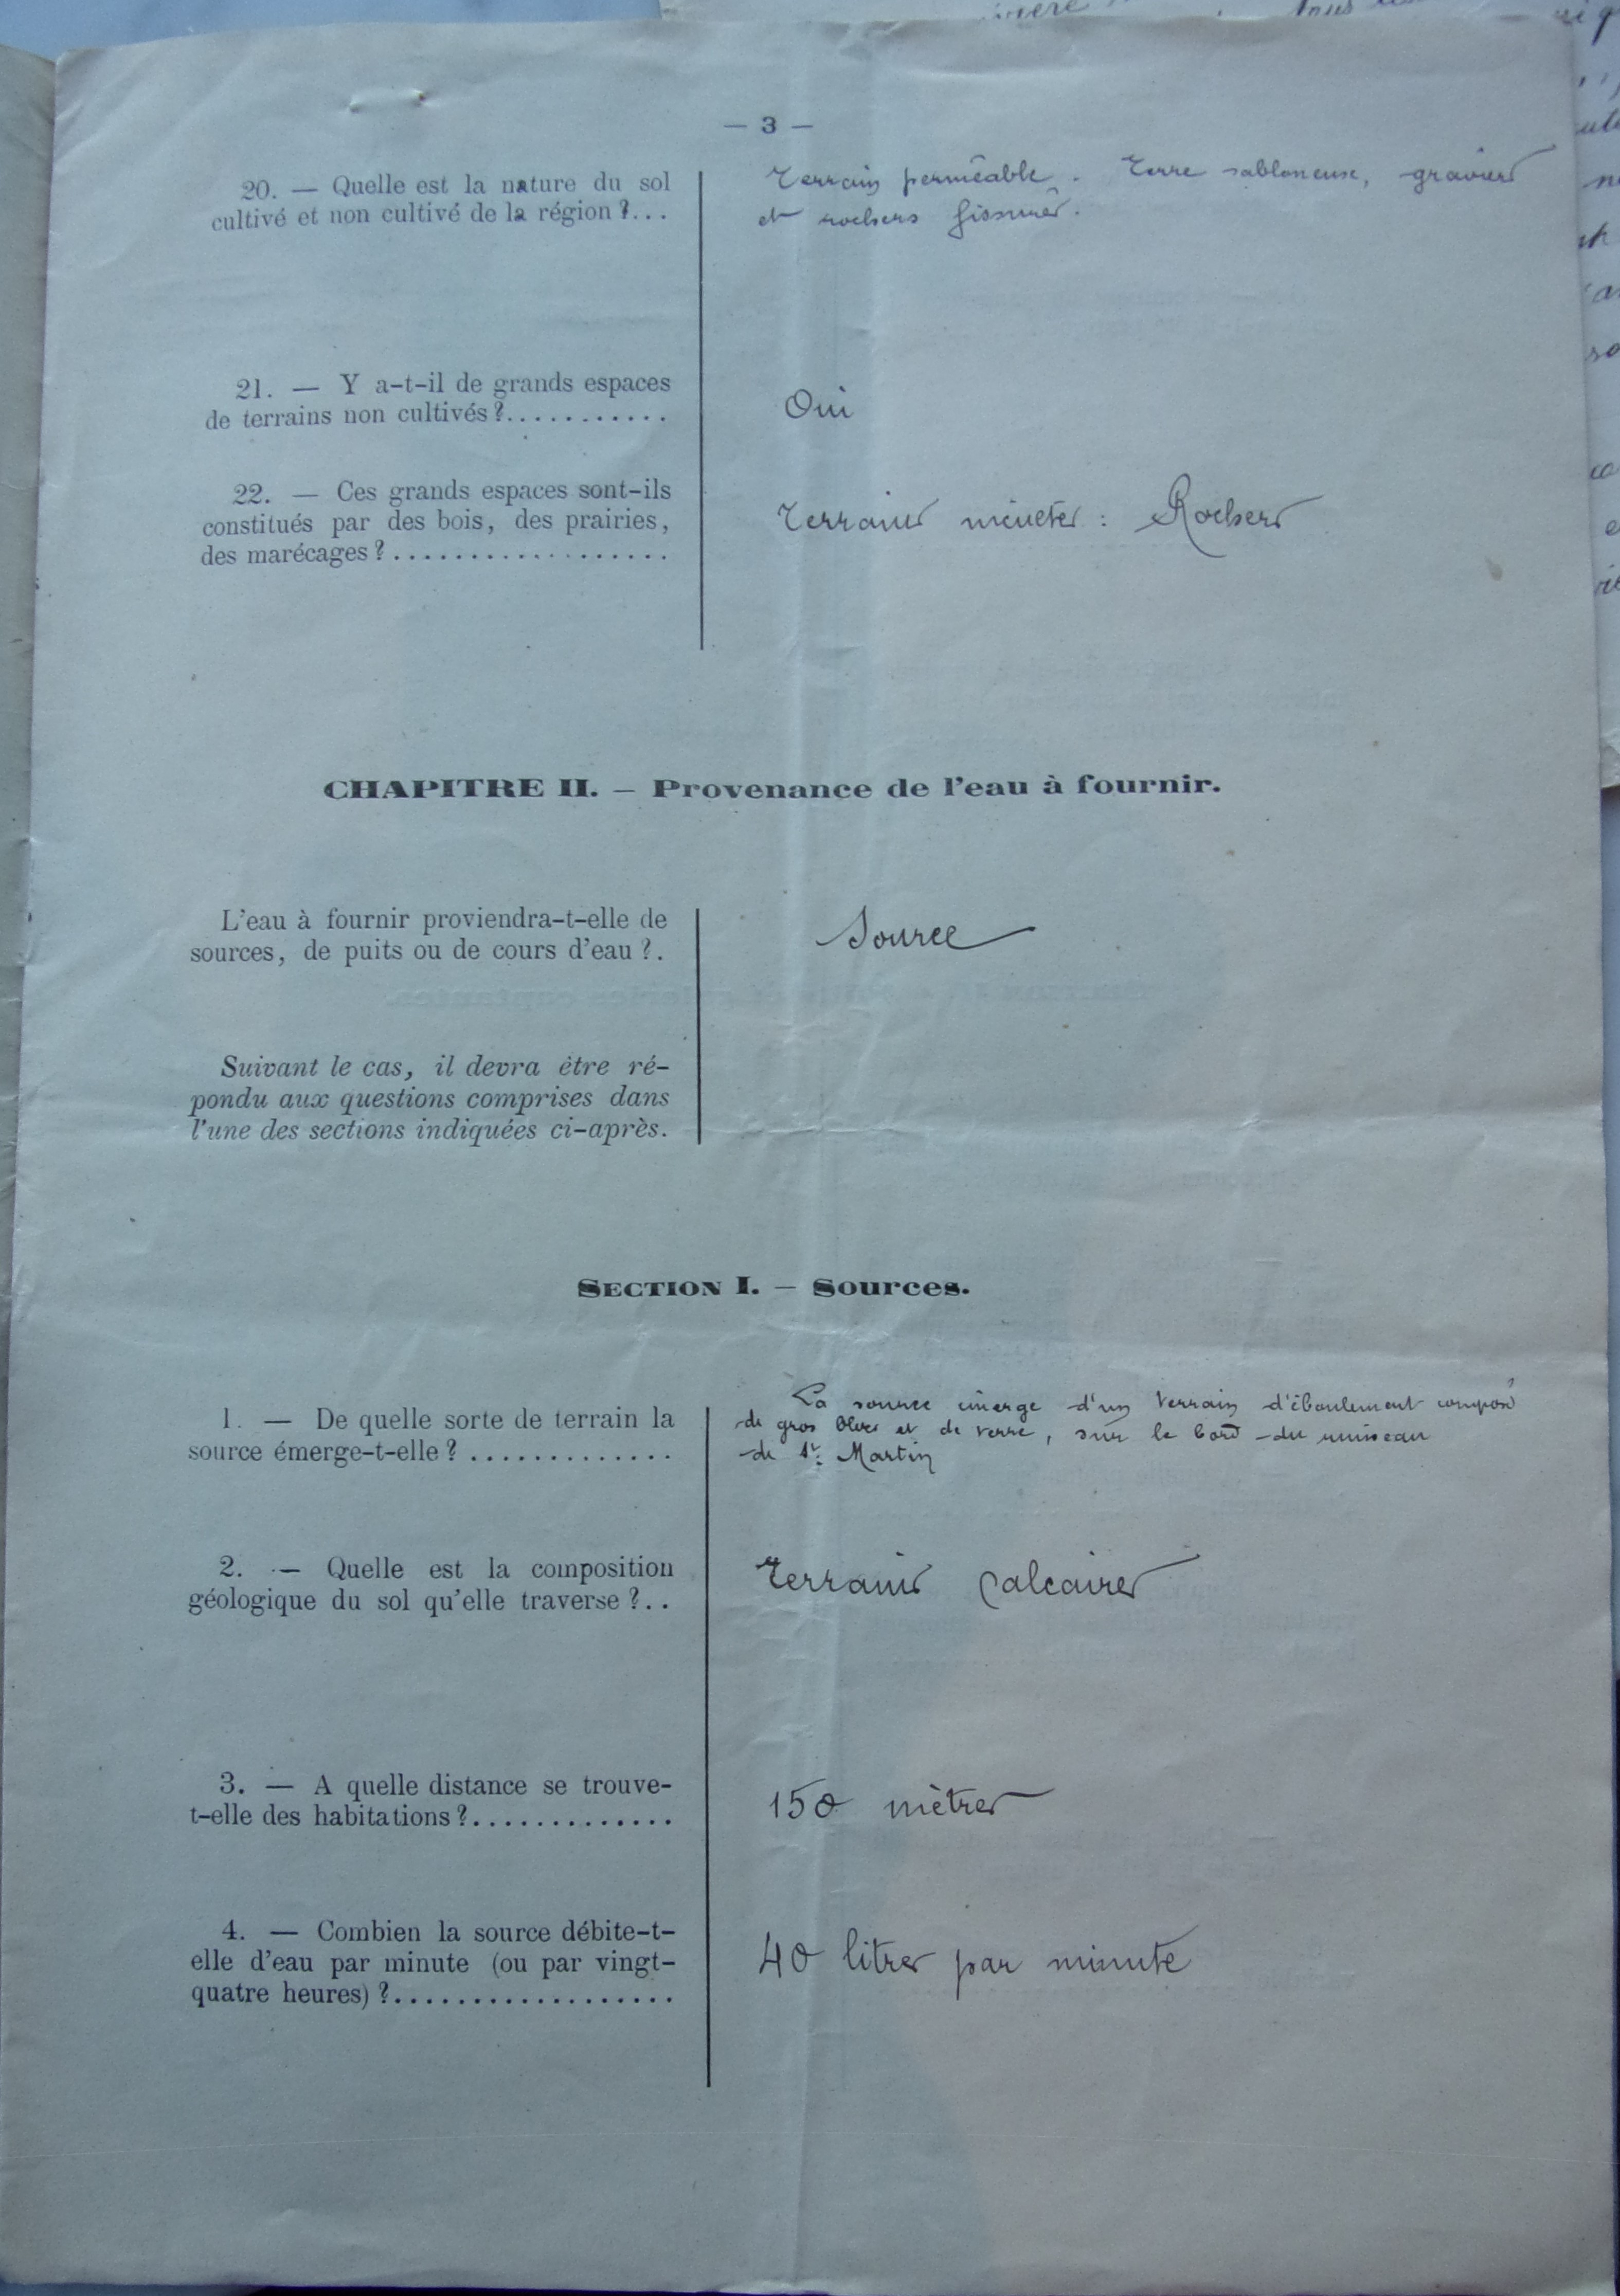 — 3 —
20. — Quelle est la nature du sol
cultivé et non cultivé de la région ?...
Terrain perméable. Terre sabloneuse, graviers
et rochers fissurés.
21. — Y a-t-il de grands espaces
de terrains non cultivés ?...........
Oui
22. — Ces grands espaces sont-ils
constitués par des bois, des prairies,
des marécages ?..................
Terrains incultes : Rochers
CHAPITRE II. — Provenance de l'eau à fournir.
L'eau à fournir proviendra-t-elle de
sources, de puits ou de cours d'eau ?.
Source
Suivant le cas, il devra être ré-
pondu aux questions comprises dans
l'une des sections indiquées ci-après.
SECTION I. — Sources.
1. — De quelle sorte de terrain la
source émerge-t-elle ?.............
La source émerge d'un terrain d'éboulement composé
de gros blocs et de terre, sur le bord du ruisseau
de St Martin
2. — Quelle est la composition
géologique du sol qu'elle traverse ?..
Terrains calcaires
3. — A quelle distance se trouve-
t-elle des habitations ?.............
150 mètres
4. — Combien la source débite-t-
elle d'eau par minute (ou par vingt-
quatre heures) ?..................
40 litres par minute